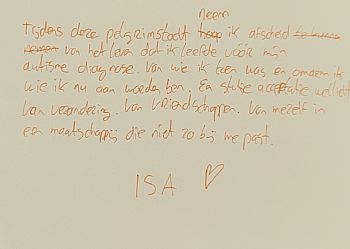 neem
Tijdens deze pelgrimstocht ik afscheid
van het leven dat ik leefde vóór mijn
autisme diagnose. Van wie ik toen was en omarm ik
wie ik nu aan worden ben. En stukje acceptatie wellicht
Van verandering. Van vriendschappen. Van mezelf in
een maatschappij die niet zo bij me past.
ISA ♡